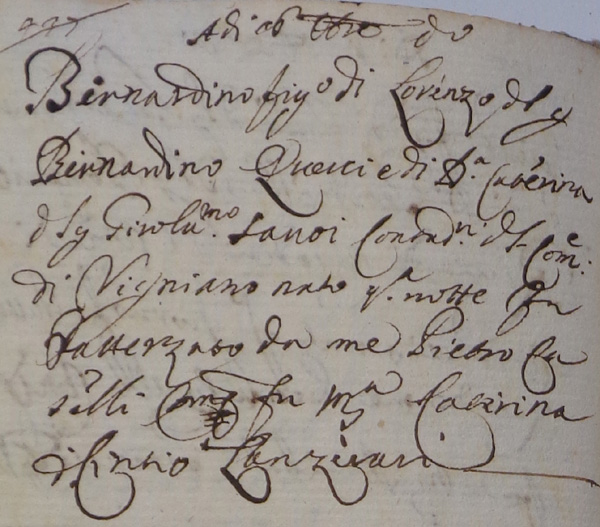 Adi 26 do
Bernardino figo di Lorenzo dl q
Bernardino e di Da Caterina
dl q Girolmo Savoi Contadni dl Come
di Vigniano nato qa notte fu
Batterzato da me Pietro Ca
selli fu Caterina
di Cintio Lanzerari